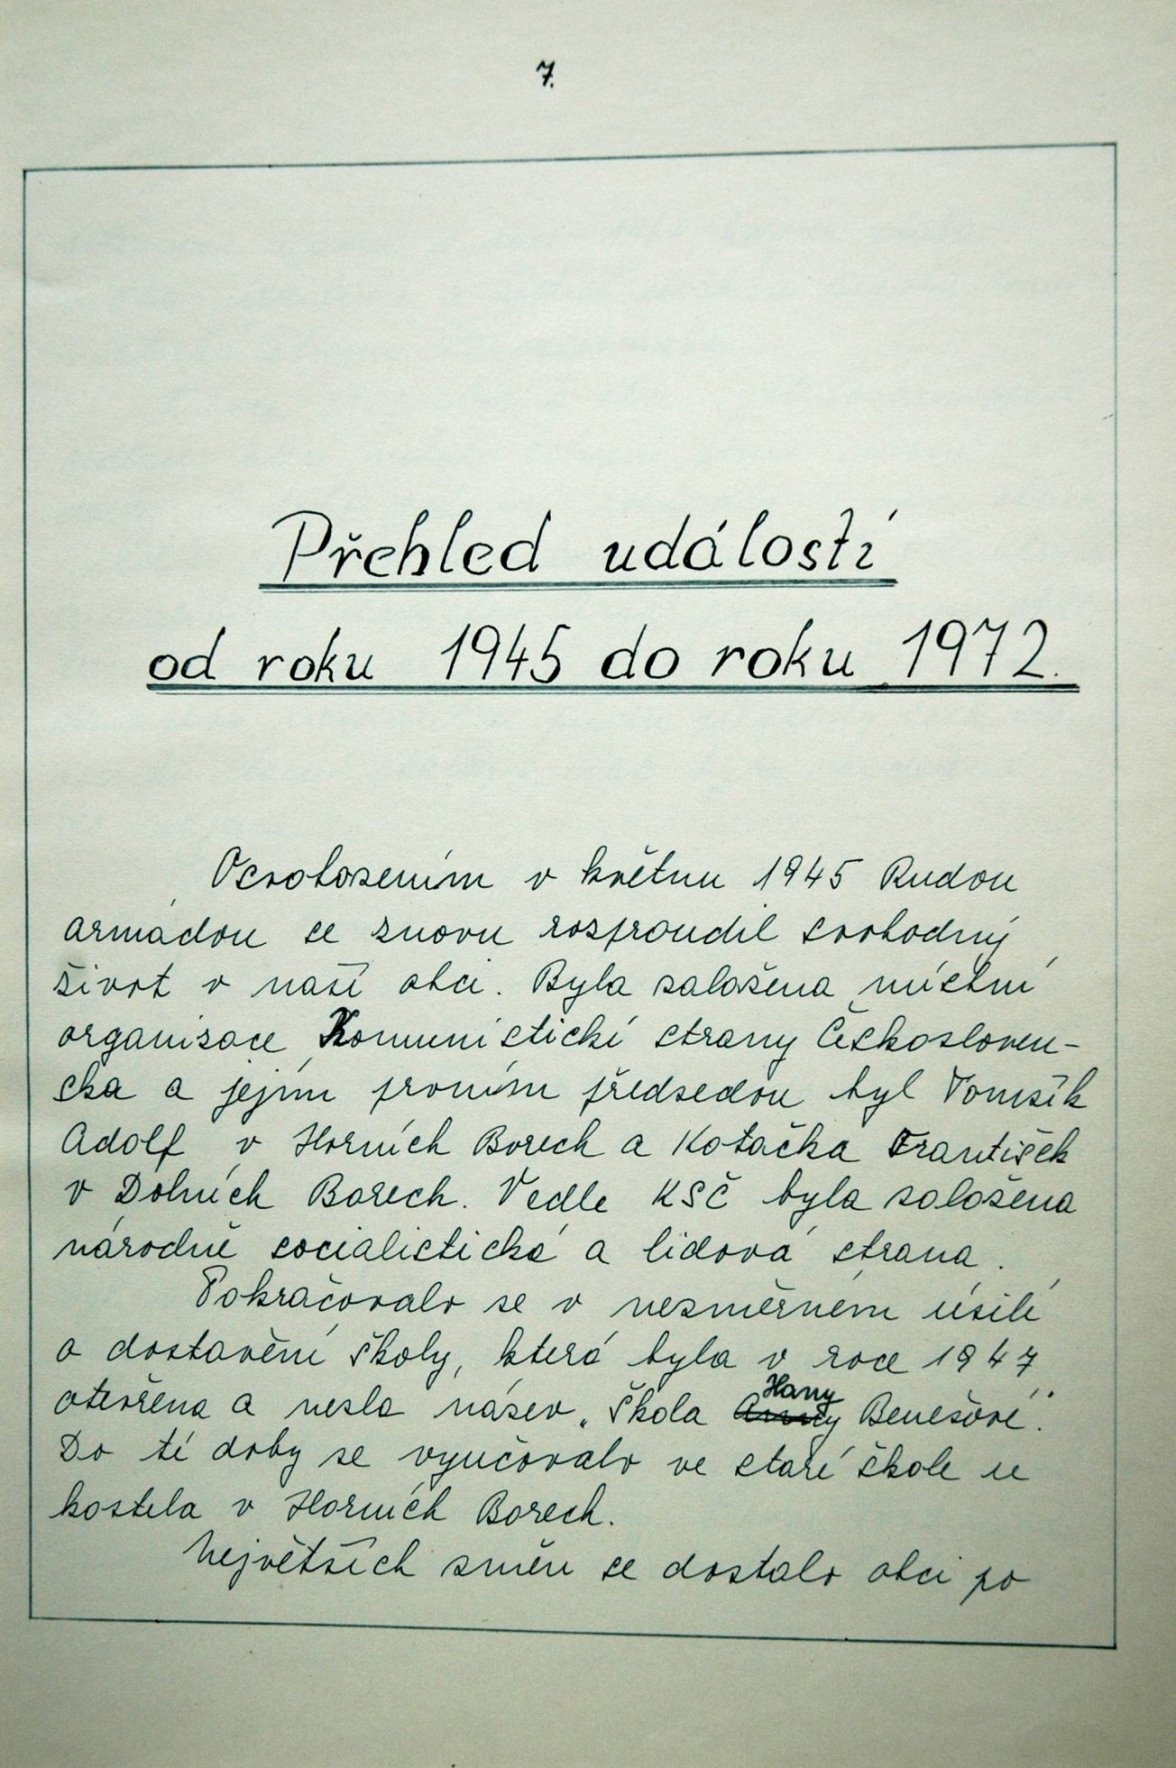 7.
Přehled událostí
od roku 1945 do roku 1972.
Osvobozením v květnu 1945 Rudou
armádou se znovu rozproudil svobodný
život v naší obci. Byla založena místní
organizace Komunistické strany Českosloven-
ska a jejím prvním předsedou byl Tomšík
Adolf v Horních Borech a Kotačka František
v Dolních Borech. Vedle KSČ byla založena
národně socialistická a lidová strana.
Pokračovalo se v nesmírném úsilí
o dostavění školy, která byla v roce 1947
otevřena a nesla název „Škola Hany Benešové".
Do té doby se vyučovalo ve staré škole u
kostela v Horních Borech.
Největších změn se dostalo obci po